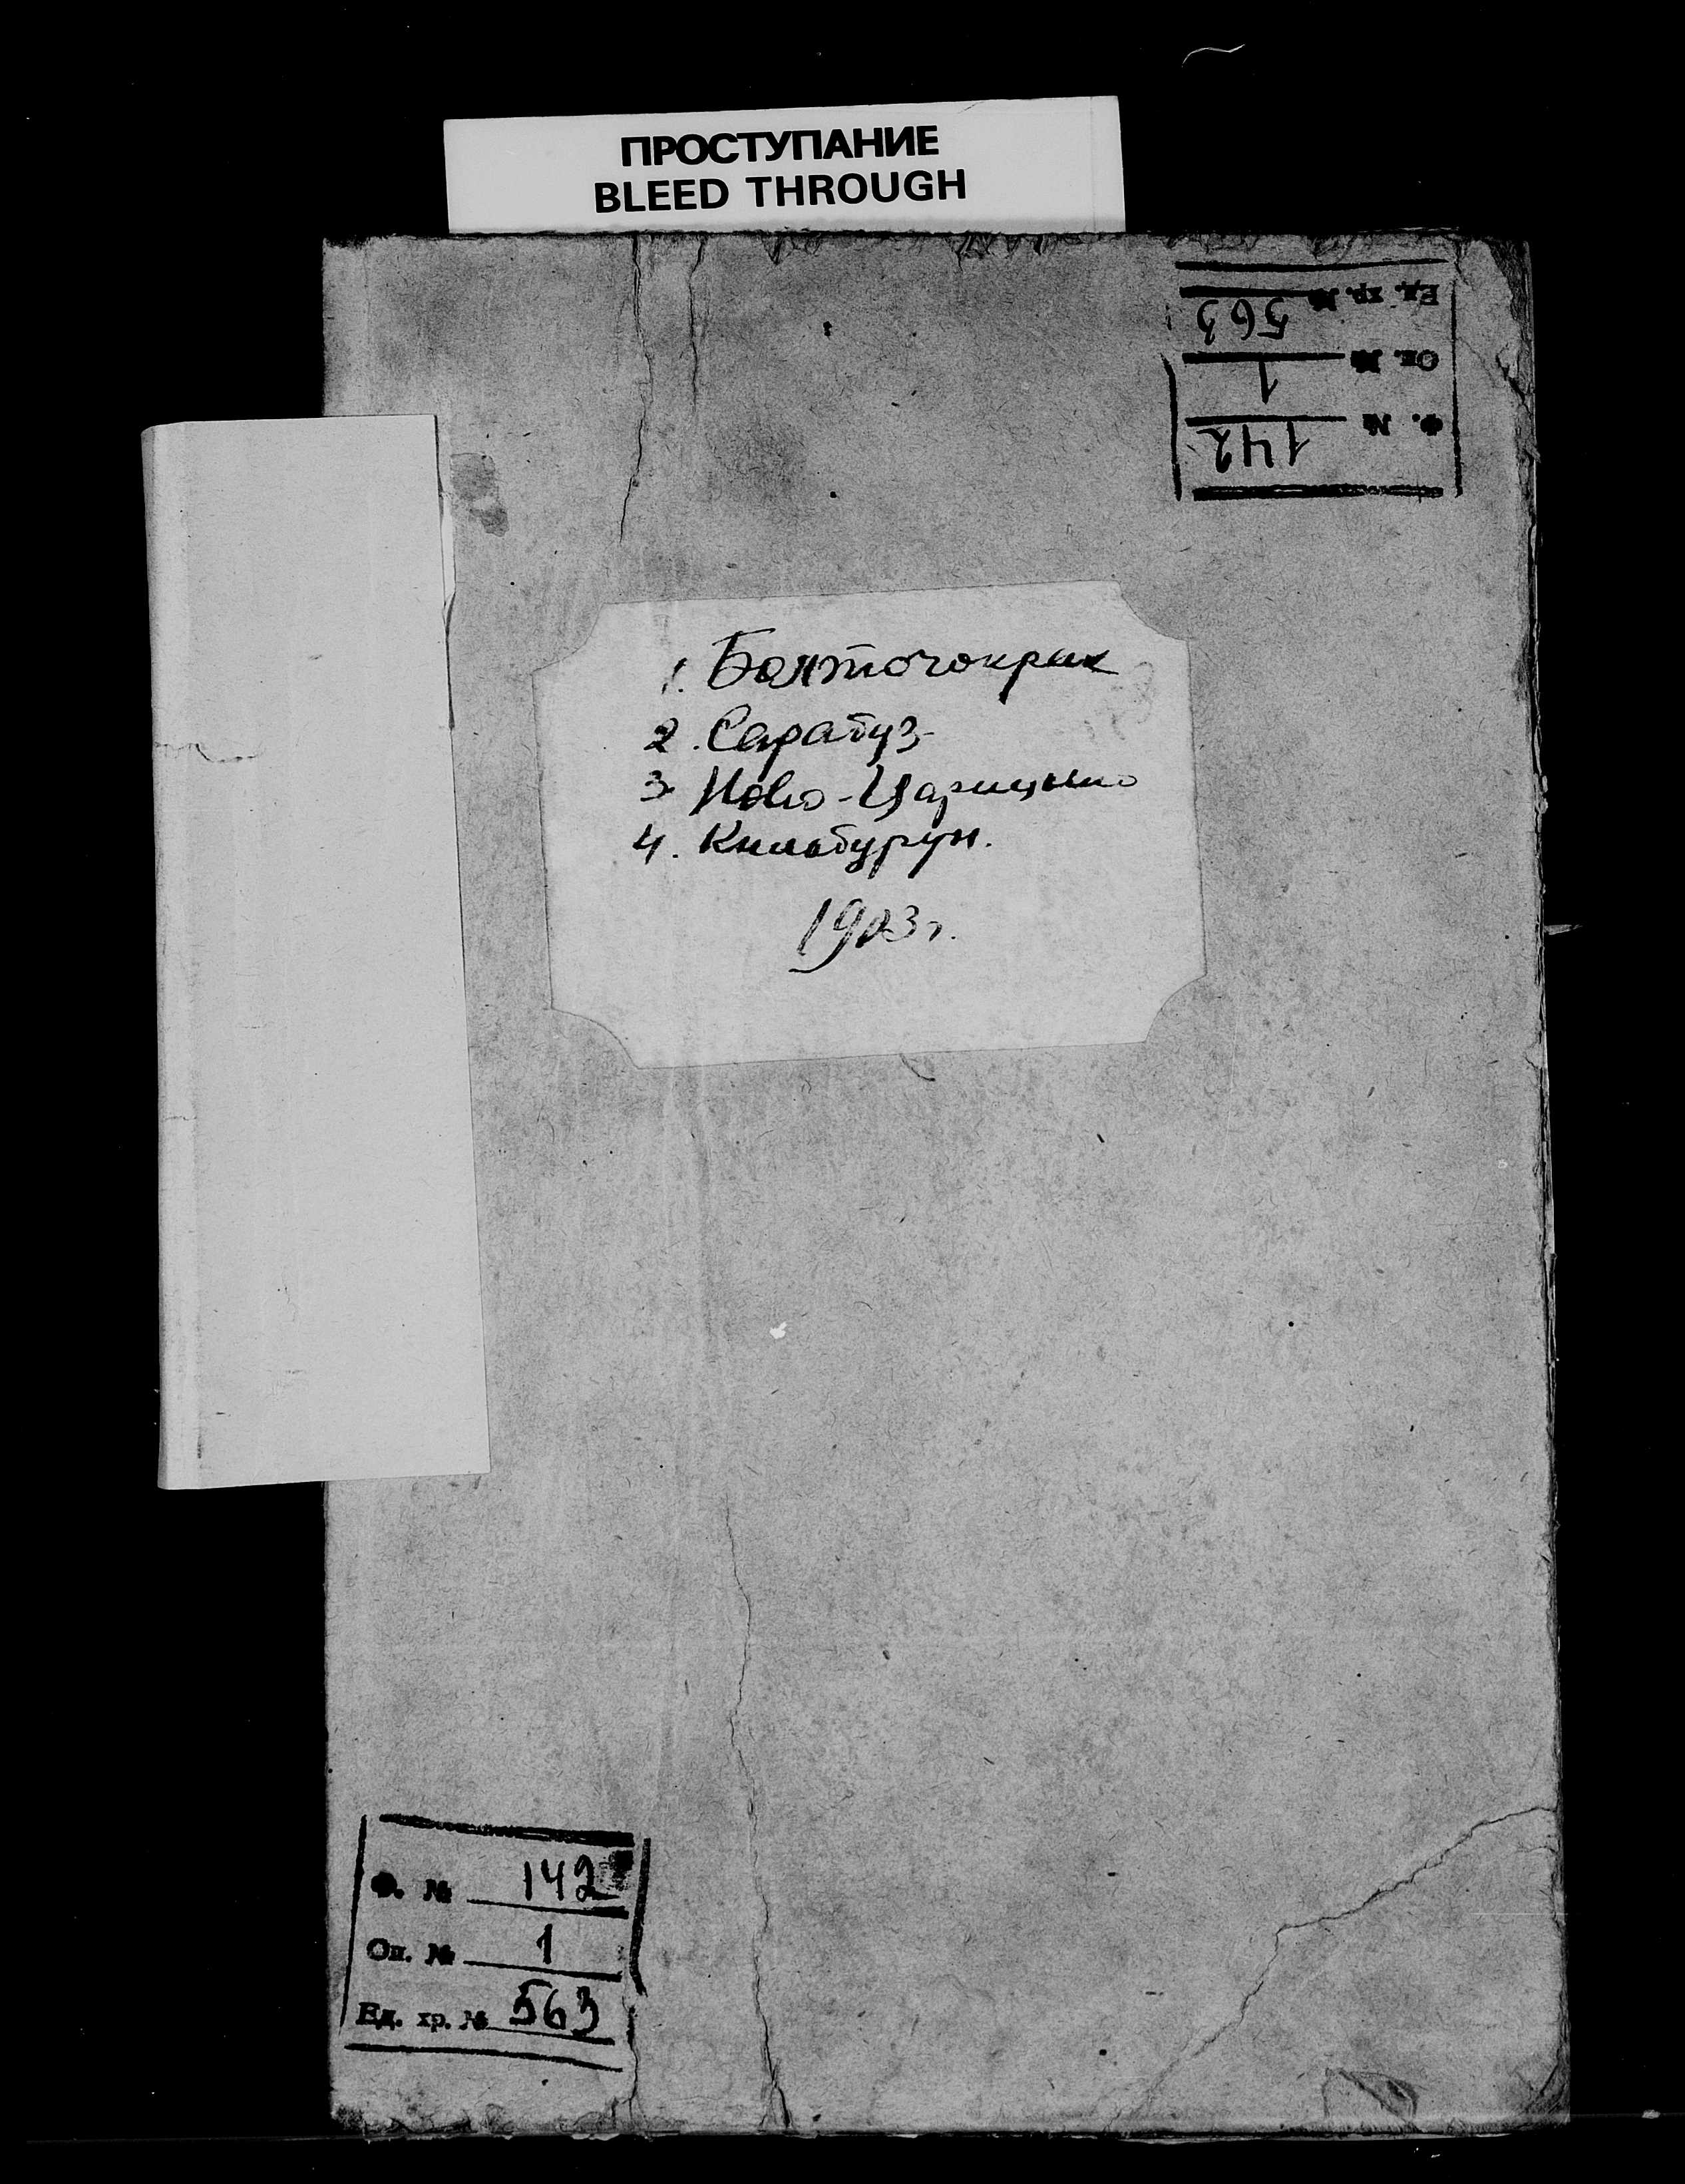 ПРОСТУПАНИЕ
BLEED THROUGH
Ед. хр. № 563
Оп. № 1
Ф. № 142
1. Бояточокрак
2. Сарабуз
3. Ново-Царицыно
4. Кильбурун.
1903 г.
Ф. № 142
Оп. № 1
Ед. хр. № 563